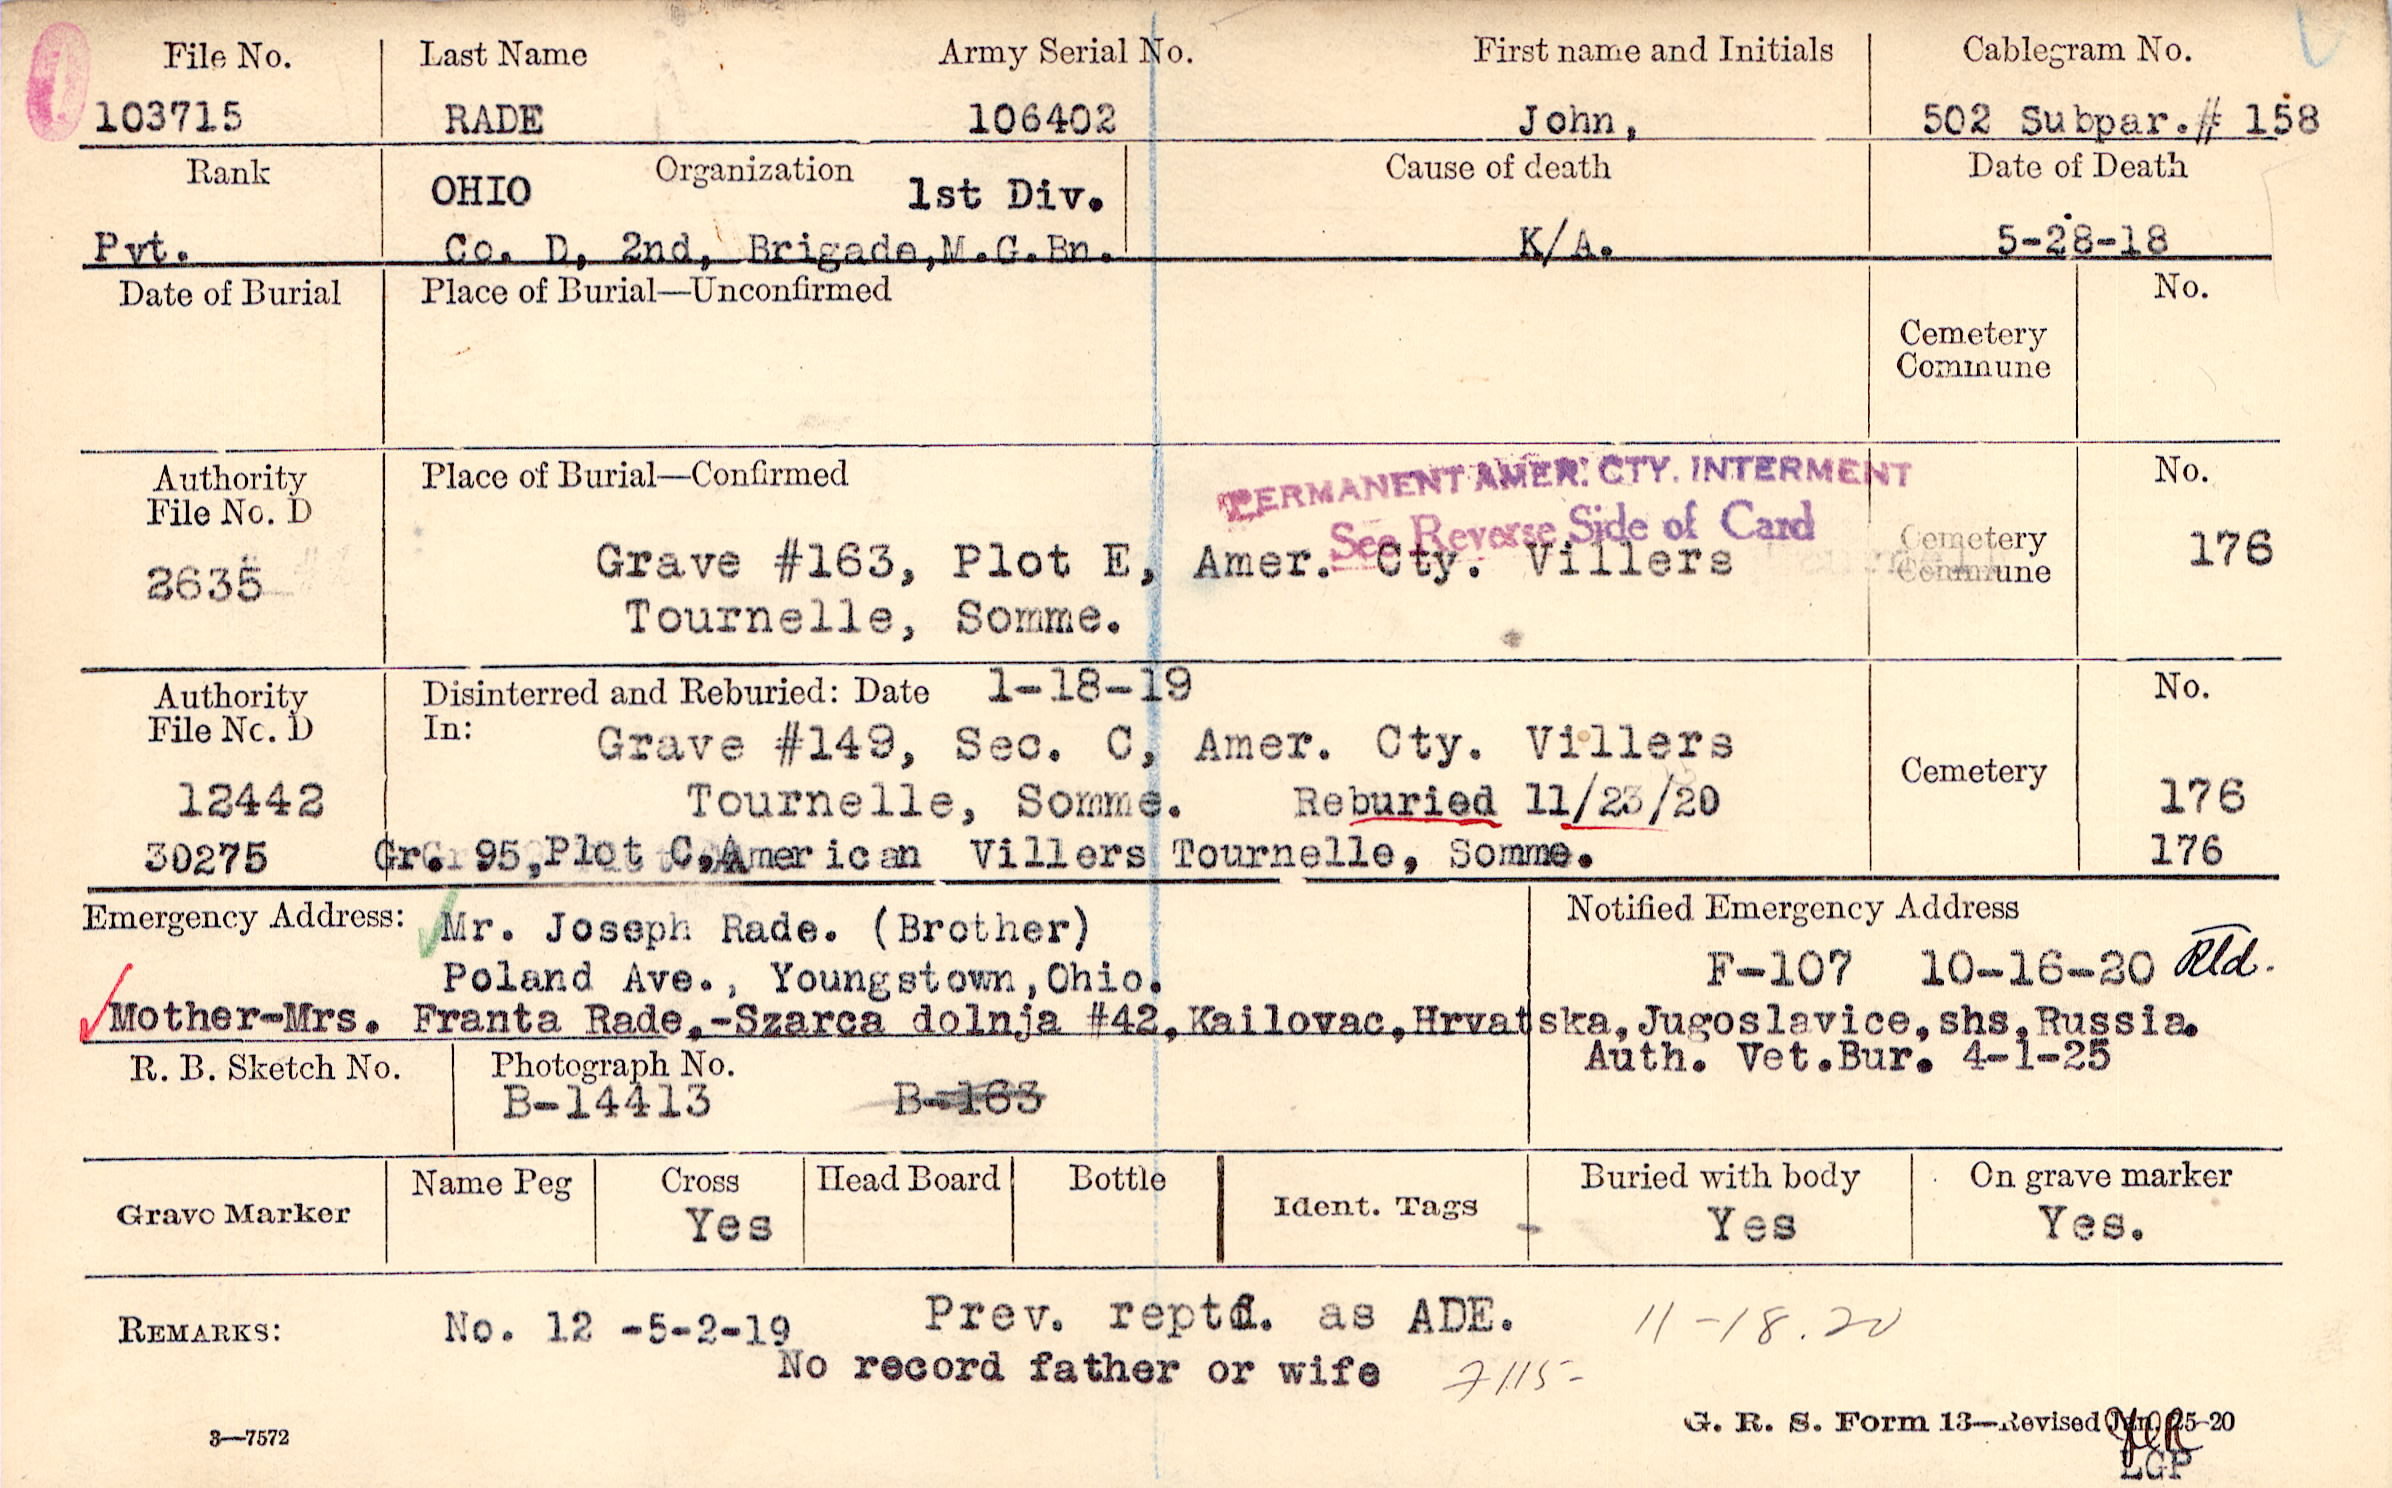 File No. Last Name Army Serial No. First name and Initials Cablegram No.
103715 RADE 106402 John, 502 Subpar.# 158
Rank Organization Cause of death Date of Death
OHIO 1st Div.
Pvt. Co. D, 2nd, Brigade,M.G.Bn. K/A. 5-28-18
Date of Burial Place of Burial—Unconfirmed No.
Cemetery
Commune
Authority Place of Burial—Confirmed PERMANENT AMER. CTY. INTERMENT No.
File No. D See Reverse Side of Card
2635 Grave #163, Plot E, Amer. Cty. Villers Cemetery 176
Tournelle, Somme. Commune
Authority Disinterred and Reburied: Date 1-18-19 No.
File No. D In: Grave #149, Sec. C, Amer. Cty. Villers
Cemetery
12442 Tournelle, Somme. Reburied 11/23/20 176
30275 Gr. 95,Plot C,American Villers Tournelle, Somme. 176
Emergency Address: Mr. Joseph Rade. (Brother) Notified Emergency Address
Poland Ave., Youngstown,Ohio. F-107 10-16-20 Rtd.
Mother-Mrs. Franta Rade,-Szarca dolnja #42,Kailovac,Hrvatska,Jugoslavice,shs,Russia.
R. B. Sketch No. Photograph No. Auth. Vet.Bur. 4-1-25
B-14413 B-163
Grave Marker Name Peg Cross Head Board Bottle Ident. Tags Buried with body On grave marker
Yes Yes Yes.
REMARKS: No. 12 -5-2-19 Prev. reptd. as ADE. 11-18.20
No record father or wife 7115-
3—7572 G. R. S. Form 13—Revised Jan. 25-20
LGP